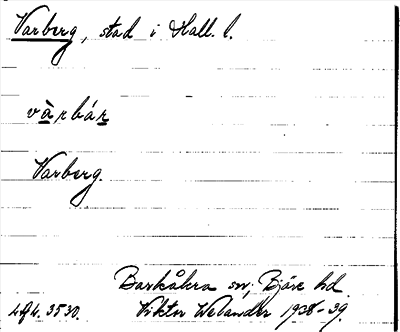 Varberg, stad i Hall. l.
vàrbár
Varberg.
Barkåkra sn, Bjäre hd
Viktor Welander 1938-39.
3530.